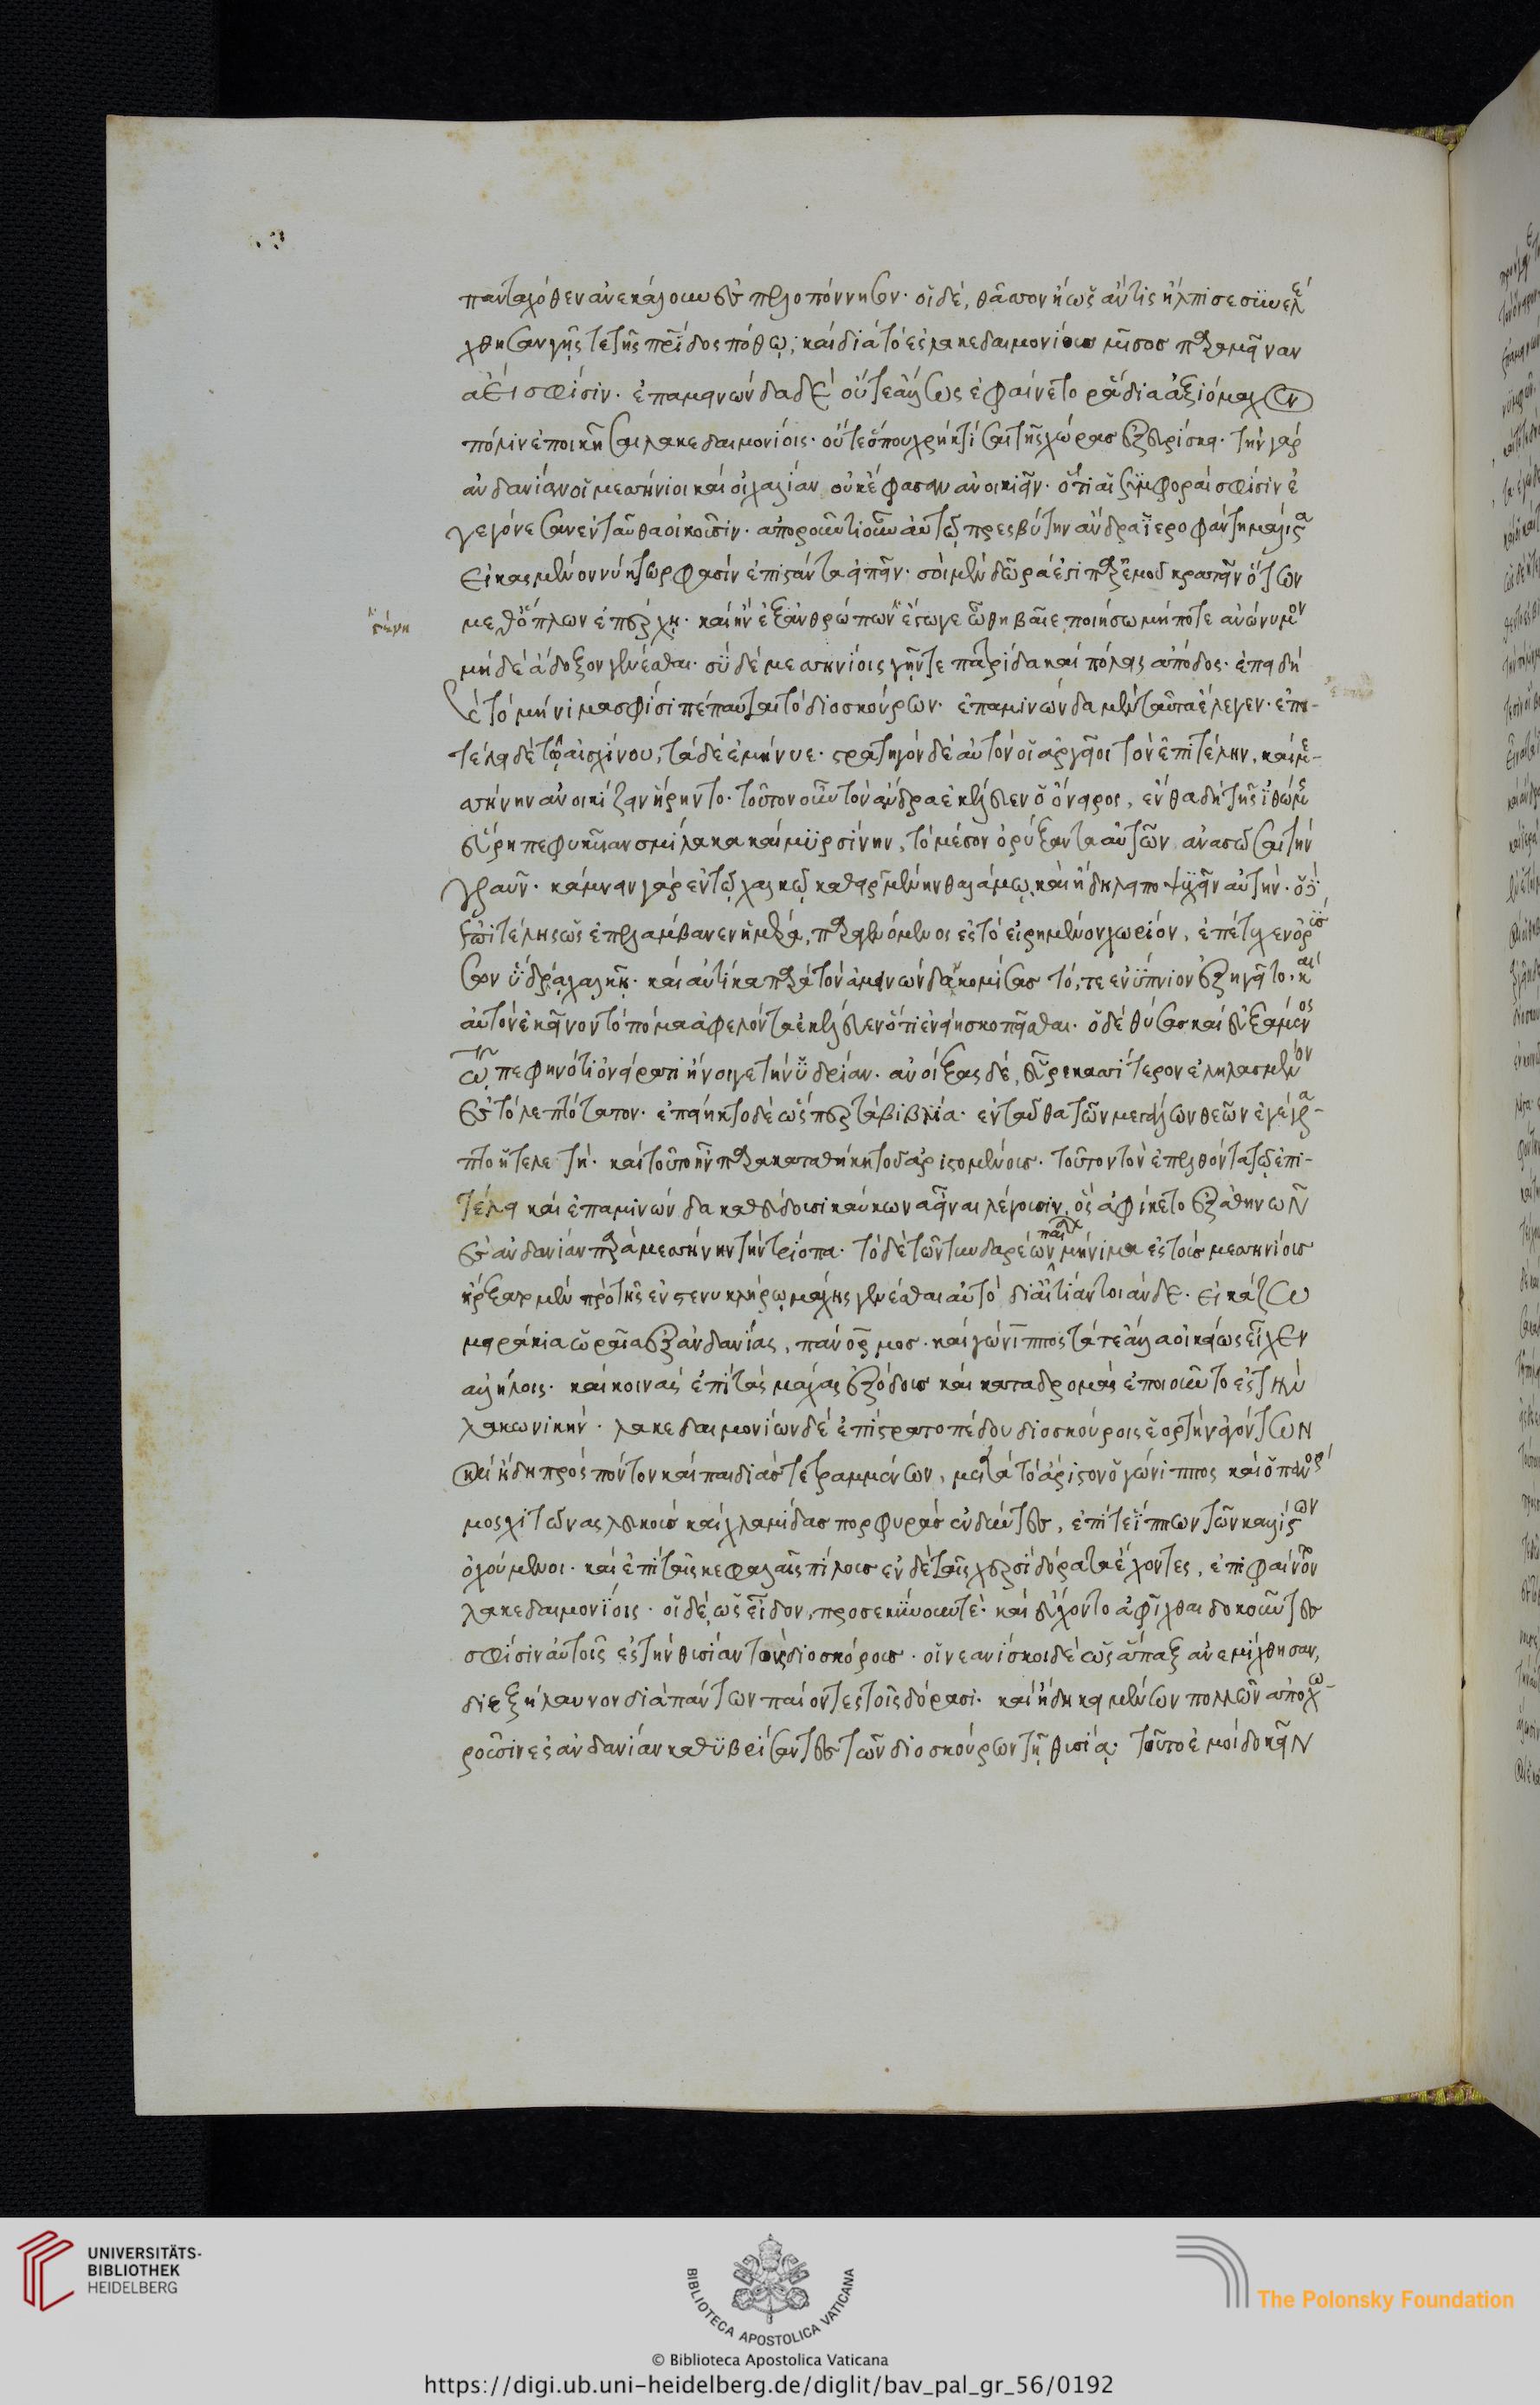 πανταχόθεν ἀνεκάλουν ἐς πελοπόννησον· οἱ δέ, θᾶσσον ἢ ὡς ἄν τις ἤλπισε συνελέ
χθησαν γῆς τε τῆς πρίδος πόθῳ, καὶ διὰ τὸ ἐς λακεδαιμονίους μῖσος παραμεῖναν
ἀεὶ σφίσιν· ἐπαμεινώνδα δὲ οὔτε ἄλλως ἐφαίνετο ῥᾴδια ἀξιόμαχον
πόλιν ἐποικῆσαι λακεδαιμονίοις· οὔτε ὅπου χρὴ κτίσαι τῆς χώρας ἐξευρίσκει· τὴν γὰρ
ἀνδανίαν οἱ μεσσήνιοι καὶ οἰχαλίαν οὐκ ἔφασαν ἀνοικιεῖν· ὅτι αἱ συμφοραὶ σφίσιν ἐ
γεγόνεσαν ἐνταῦθα οἰκοῦσιν· ἀποροῦντι οὖν αὐτῷ πρεσβύτην ἄνδρα ἱεροφάντη μάλιστα
εἰκασμένον νύκτωρ φασὶν ἐπιστάντα εἰπεῖν· σοὶ μὲν δῶρά ἐστι παρ' ἐμοῦ κρατεῖν ὅτων
μεθ' ὅπλων ἐπέρχῃ· καὶ ἢν ἐξ ἀνθρώπων ἔγωγε ὦ θηβαῖε ποιήσω μήποτε ἀνώνυμον
μὴ δὲ ἄδοξον γενέσθαι· σὺ δὲ μεσσηνίοις γῆν τε πατρίδα καὶ πόλεις ἀπόδος· ἐπειδὴ
τὸ μήνιμα σφίσι πέπαυται τὸ διοσκούρων· ἐπαμινώνδα μὲν ταῦτα ἔλεγεν· ἐπι-
τέλει δὲ τῷ αἰσχίνου, τάδε ἐμήνυε· στρατηγὸν δὲ αὐτὸν οἱ ἀργεῖοι τὸν ἐπιτέλην, καὶ με-
σσήνην ἀνοικίζειν ᾕρηντο· τοῦτον οὖν τὸν ἄνδρα ἐκέλευεν ὁ ὄνειρος, ἔνθα δὴ τῆς ἰθώμης
εὕρῃ πεφυκυῖαν σμίλακα καὶ μυρσίνην, τὸ μέσον ὀρύξαντα αὐτῶν ἀνασῶσαι τὴν
γραῦν· κάμνειν γὰρ ἐν τῷ χαλκῷ καθειργμένην θαλάμῳ, καὶ ἤδη λειποψυχεῖν αὐτήν· ὁ δὲ
ἐπιτέλης ὡς ἐπελάμβανεν ἡμέρα, παραγενόμενος ἐς τὸ εἰρημένον χωρίον, ἐπέτυχεν ὀρύσ
σων ὑδρίᾳ χαλκῇ· καὶ αὐτίκα παρὰ τὸν ἐπαμεινώνδα κομίσας τό, τε ἐνύπνιον ἐξηγεῖτο· καὶ
αὐτὸν ἐκεῖνον τὸ πόμα ἀφελόντα ἐκέλευεν ὅτι ἐνείη σκοπεῖσθαι. ὁ δὲ θύσας καὶ εὐξάμενος
τῷ πεφηνότι ὀνείρατι ἤνοιγε τὴν ὑδρίαν· ἀνοίξας δέ, εὗρε κασσίτερον ἐληλασμένον
ἐς τὸ λεπτότατον· ἐπείληκτο δὲ ὥσπερ τὰ βιβλία· ἐνταῦθα τῶν μεγάλων θεῶν ἐγέγρα-
πτο ἡ τελετή· καὶ τοῦτο ἦν παρακαταθήκη τοῦ ἀριστομένους· τοῦτον τὸν ἐπελθόντα τῷ ἐπι-
τέλει καὶ ἐπαμινώνδα καθεύδουσι καύκωνα εἶναι λέγουσιν, ὃς ἀφίκετο ἐξ ἀθηνῶν
ἐς ἀνδανίαν παρὰ μεσσήνην τὴν τριόπα· τὸ δὲ τῶν τυνδαρέων παίδων μήνιμα ἐς τοὺς μεσσηνίους
ἤρξατο μὲν πρὸ τῆς ἐν στενυκλήρῳ μάχης γενέσθαι αὐτὸ δι' αἰτίαν τοιάνδε· εἰκάζω
μειράκια ὡραῖα ἐξ ἀνδανίας, πάνορμος· καὶ γώνιππος τά τε ἄλλα οἰκείως εἶχεν
ἀλλήλοις· καὶ κοινὰς ἐπὶ τὰς μάχας ἐξόδους καὶ καταδρομὰς ἐποιοῦντο ἐς τὴν
λακωνικήν· λακεδαιμονίων δὲ ἐπὶ στρατοπέδου διοσκούροις ἑορτὴν ἀγόντων
καὶ ἤδη πρὸς πότον καὶ παιδιὰς τετραμμένων, μετὰ τὸ ἄριστον ὁ γώνιππος καὶ ὁ πάνορ
μος χιτῶνας λευκοὺς καὶ χλαμύδας πορφυρᾶς ἐνδύντες, ἐπί τε ἵππων τῶν καλλίστων
ὀχούμενοι· καὶ ἐπὶ ταῖς κεφαλαῖς πίλους ἐν δὲ ταῖς χερσὶ δόρατα ἔχοντες, ἐπιφαίνονται
λακεδαιμονίοις· οἱ δὲ, ὡς εἶδον, προσεκύνουν τε· καὶ εὔχοντο ἀφῖχθαι δοκοῦντες
σφίσιν αὐτοῖς ἐς τὴν θυσίαν τοὺς διοσκόρους· οἱ νεανίσκοι δὲ ὡς ἅπαξ ἀνεμίχθησαν,
διεξήλαυνον διὰ πάντων παίοντες τοῖς δόρασι· καὶ ἤδη κειμένων πολλῶν ἀποχω-
ροῦσιν ἐς ἀνδανίαν καθυβρίσαντες τῶν διοσκούρων τῇ θυσίᾳ· τοῦτο ἐμοὶ δοκεῖν
UNIVERSITÄTS-
BIBLIOTHEK
HEIDELBERG
BIBLIOTECA APOSTOLICA VATICANA
© Biblioteca Apostolica Vaticana
The Polonsky Foundation
https://digi.ub.uni-heidelberg.de/diglit/bav_pal_gr_56/0192